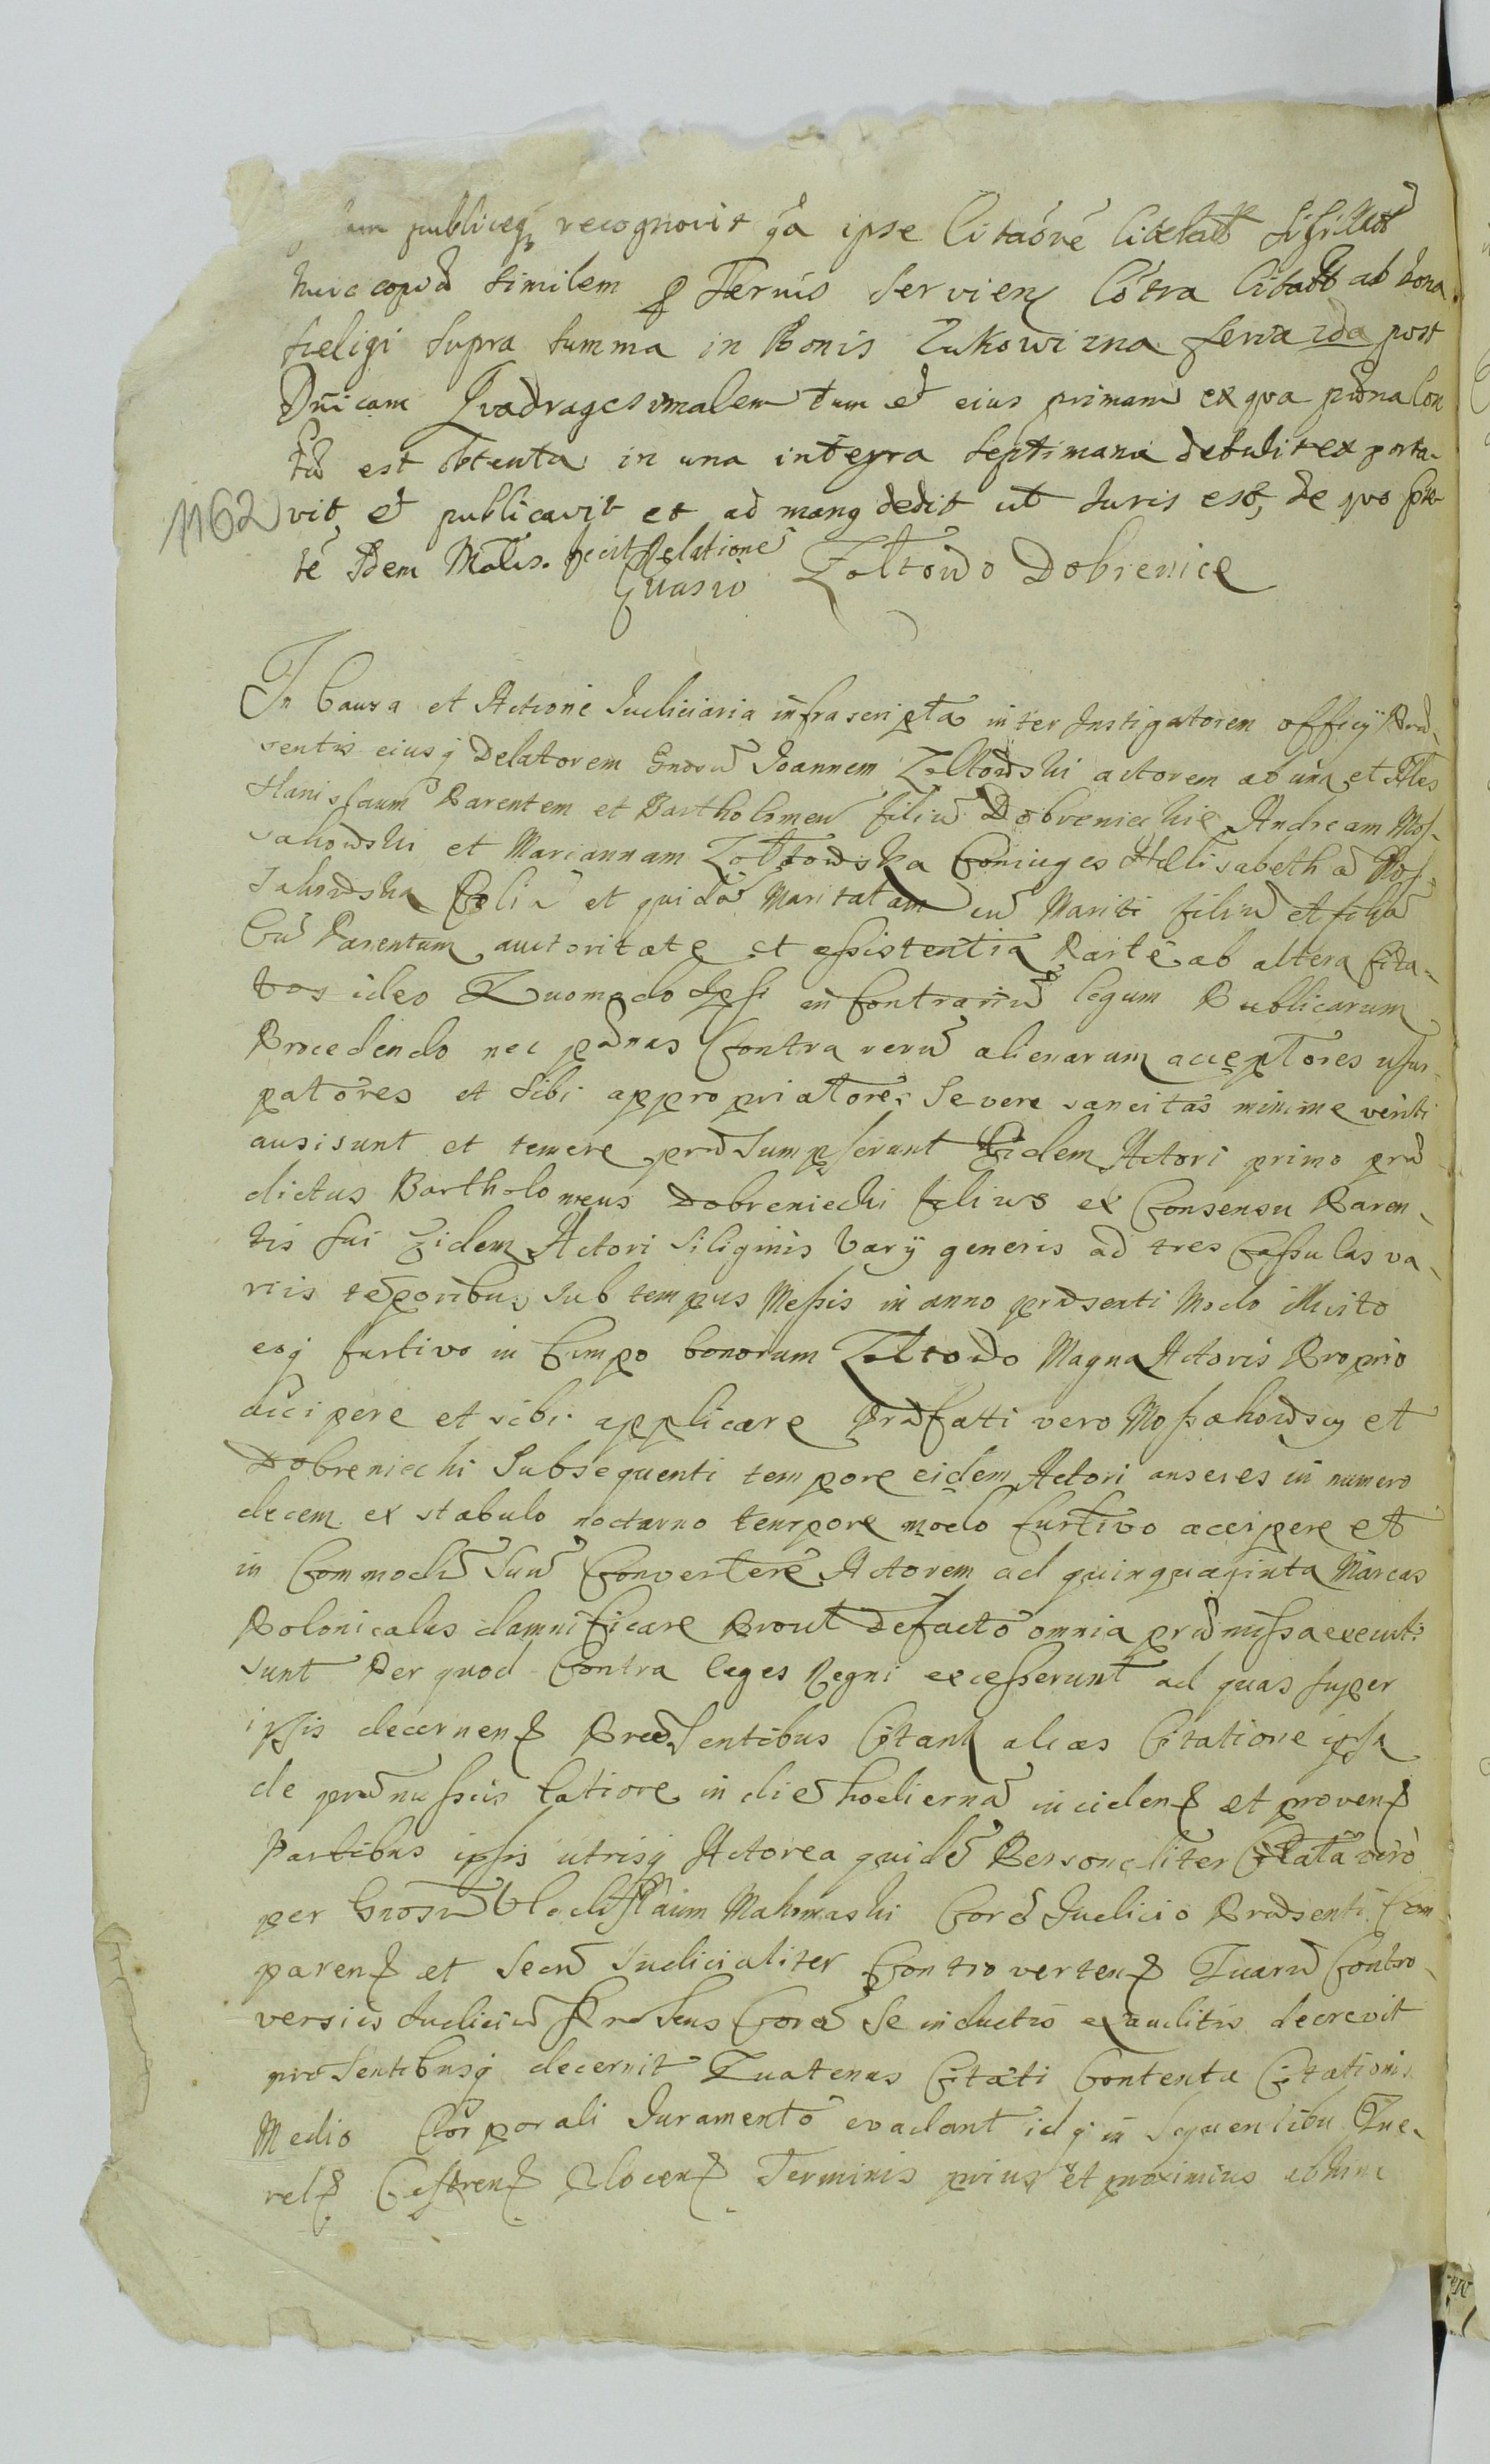 publiceq recognovit qa ipse Citaone Sigillat
huic copia similem p Ternis Servien Cotra ab bona
supra summa in Bonis Zukowizna feria 2da post
Dnicam Qvadragesimalem tum et eius primam ex qva
est obtenta in una integra Septimana detulit ex porta-
1162 vit, et publicavit et ad mang dedit ut Iuris est, de qvo
te Idem fecit Relatione
Gnasio Zoltowo Dobrenice
In Causa et Actione Iudiciaria infrascripta inter Instigatorem officij Præ-
sentis eiusq Delatorem Gnosu Joannem Zoltowski actorem ab una et
Stanislaum Parentem et Bartholomeu filiu Dobreniechie Andream Mos-
sakowski et Mariannam Zoltowska Coniuges Helisabetha Mos-
sakowska filia et quide Maritatam cu Mariti filiu et filia
Cu Parentum auctoritate et assistentia Parte ab altera Cita-
tos ideo Quomodo Ipsi in Contrariu legum Publicarum
Procedendo nec pænas Contra reru alienarum acceptores usur-
patores et sibi appropriatores Severe sancitas minime veriti
ausi sunt et temere præsumpserunt Eidem Actori primo præ-
dictus Bartholomeus Dobreniechi filius ex Consensu Paren-
tis sui Eidem Actori Siliginis Varij generis ad tres Cassulas va-
riis teporibus sub tempus Messis in anno præsenti Modo illicito
eoq furtivo in Campo bonorum Zoltowo Magna Actoris Proprio
accipere et sibi applicare Præfatti vero Mossakowscy et
Dobreniechi Subsequenti tempore eidem Actori anseres in numero
decem ex stabulo nocturno tempore modo furtivo accipere et
in Commodu Suu Convertere Actorem ad quinquaginta Marcas
Polonicales damnificare Prout de facto omnia præmissa executi
sunt Per quod Contra leges Regni excesserunt ad quas super
ipsis decernen Præsentibus Citant alias Citatione ipsa
de præmissis latiore in die hodierna inciden et proven
Partibus ipsis utrisq Actorea quide Personaliter Citata vero
per Gnosu Vladislaum Makomaski Cora Iudicio Præsenti Com-
paren et Secu Iudicialiter Controverten Quaru Contro-
versiis Iudiciu Præsens Cora Se inductis exauditis decrevit
præsentibusq decernit Quatenus Citati Contenta Citationis
Medio Corporali Iuramento evadant idq in Sequentibus Que-
rel Castren Plocen Terminis prius et proximius abhinc